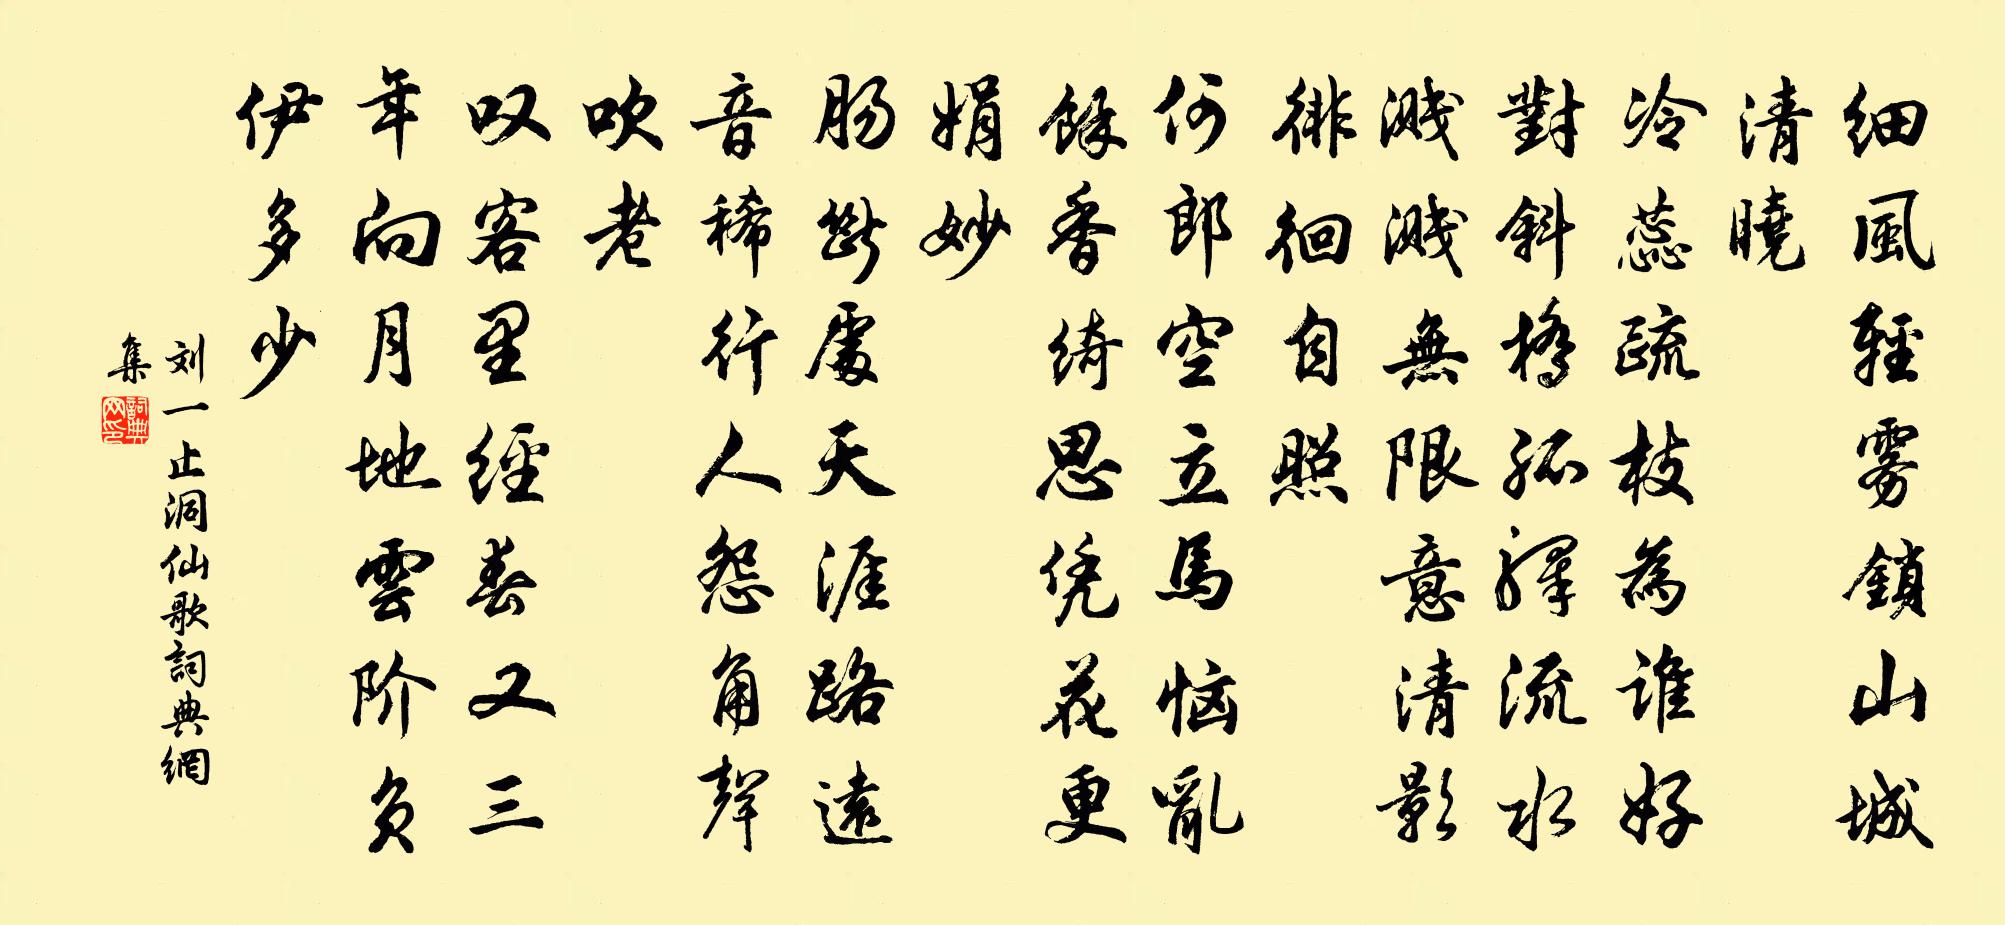 细風輕雾鎖山城
清曉
冷蕊疏枝為谁好
對斜橋孤驛流水
溅溅無限意清影
徘徊自照
何郎空立馬恼亂
餘香绮思凭花更
娟妙
肠斷處天涯路遠
音稀行人怨角聲
吹老
叹客里經春又三
年向月地雲阶负
伊多少
刘一止洞仙歌詞典網
集
詞典網